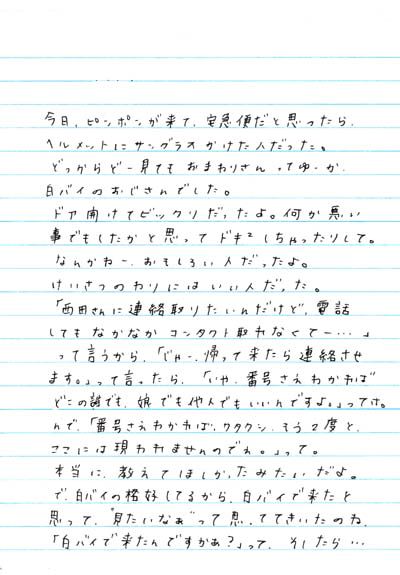 今日、ピンポンが来て、宅急便だと思ったら、
ヘルメットにサングラスかけた人だった。
どっからどー見てもおまわりさんってゆーか、
白バイのおじさんでした。
ドア開けてビックリだったよ。何か悪い
事でもしたかと思ってドキ²しちゃったりして。
なんかねー、おもしろい人だったよ。
けいさつのわりにはいい人だった。
「西田さんに連絡取りたいんだけど、電話
してもなかなかコンタクト取れなくてー…」
って言うから、「じゃー、帰って来たら連絡させ
ます。」って言ったら、「いや、番号さえわかれば
どこの誰でも、娘でも他人でもいいんですよ。」ってさ。
んで、「番号さえわかれば、ワタクシ、もう2度と、
ここには現われませんのでね。」って。
本当に、教えてほしかったみたいだよ。
で、白バイの格好してるから、白バイで来たと
思って、"見たいなぁ"って思ってきいたのね、
「白バイで来たんですかぁ？」って、そしたら…